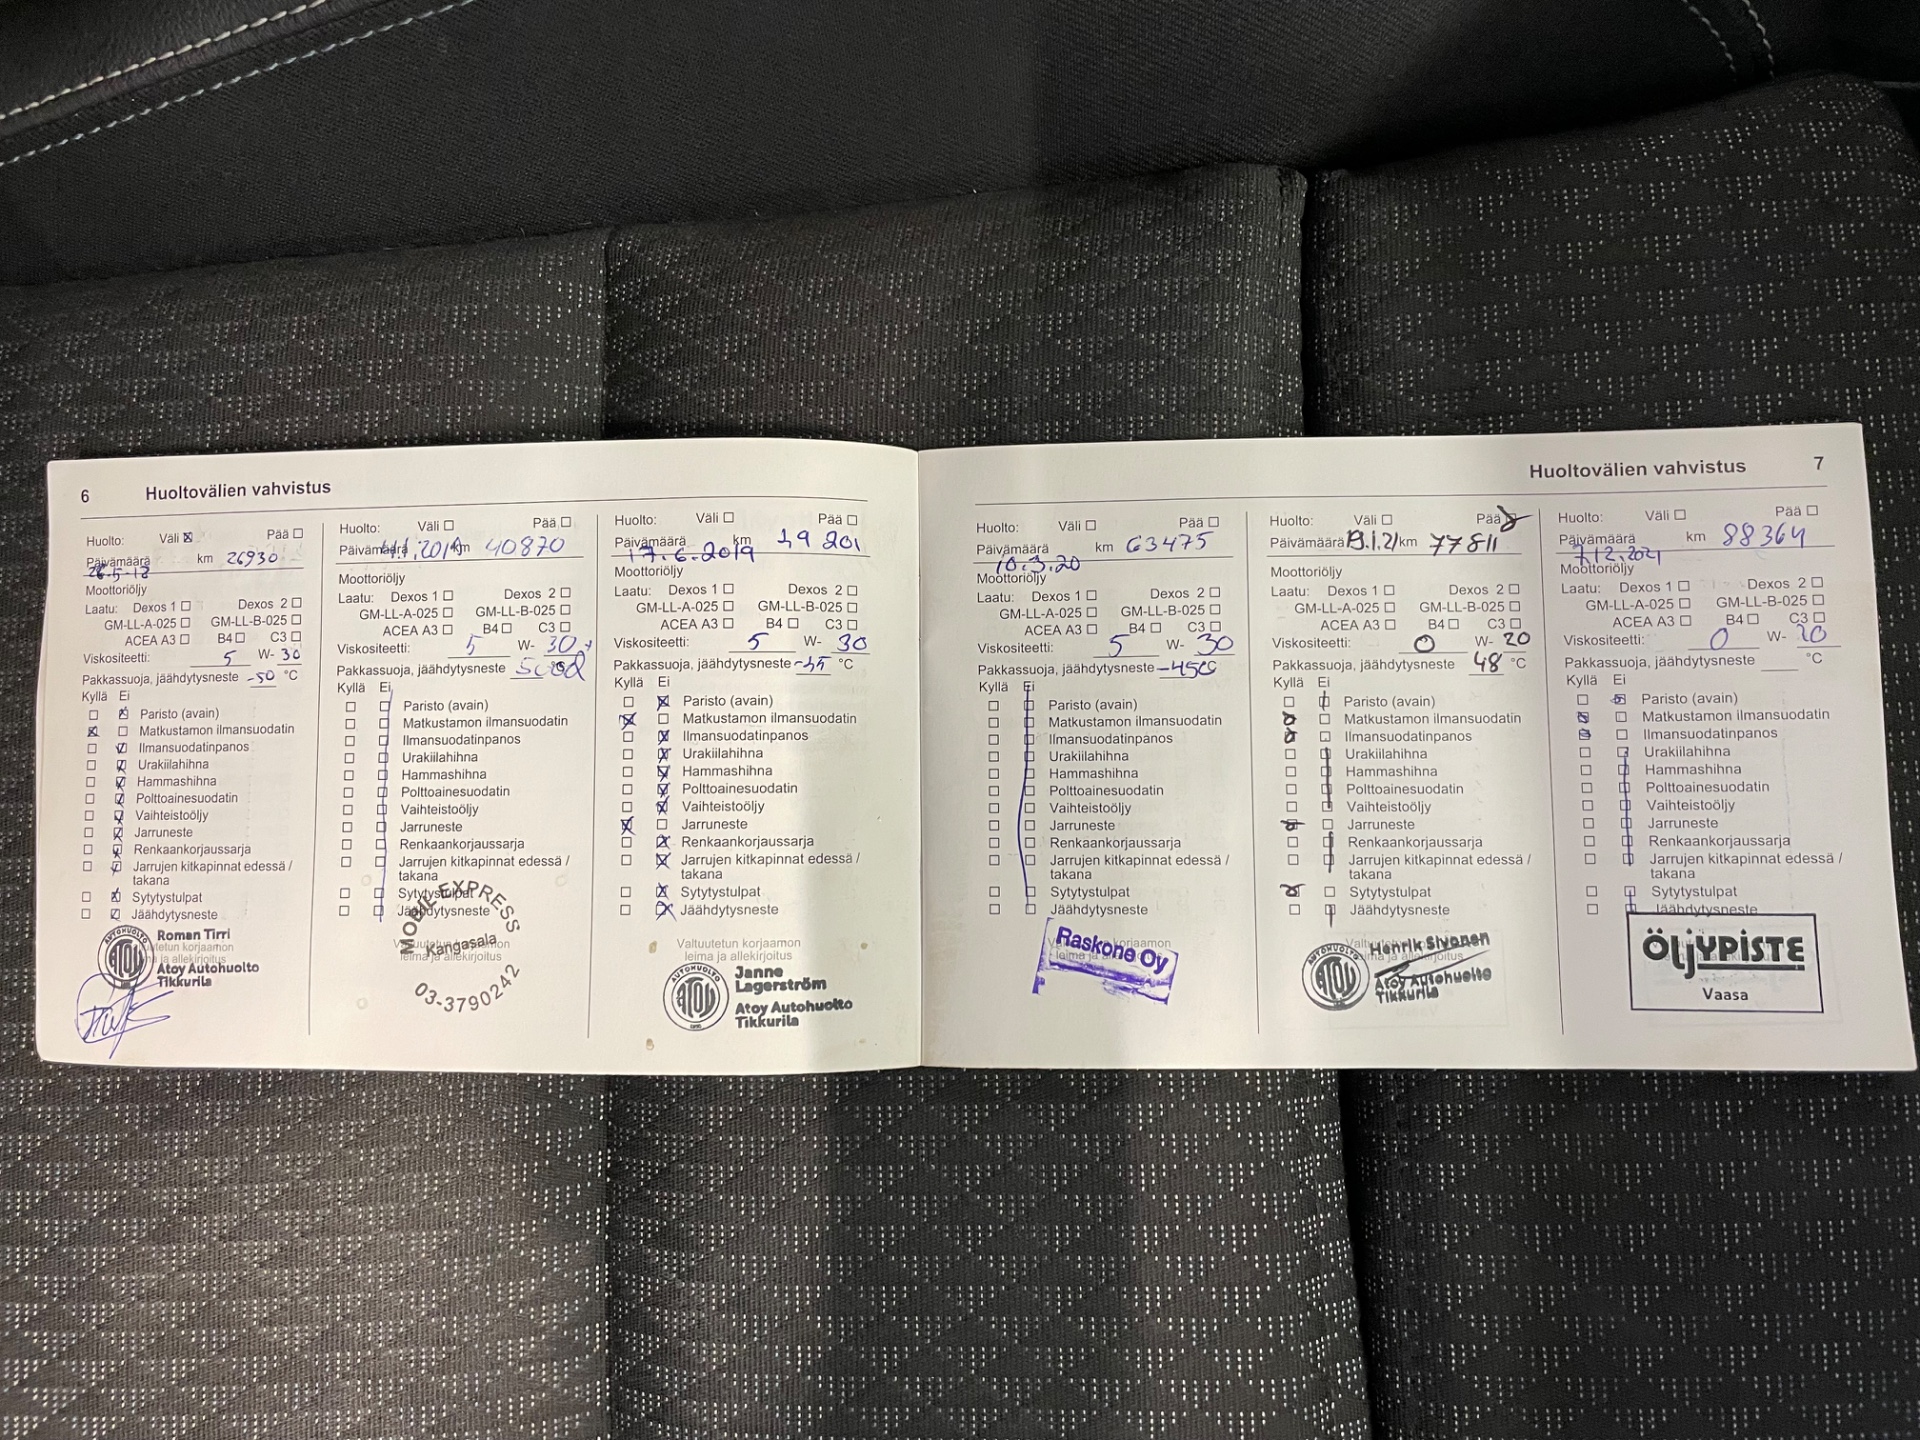 6 Huoltovälien vahvistus
Huolto: Väli Pää
Päivämäärä km 26930
26.5-18
Moottoriöljy
Laatu: Dexos 1 Dexos 2
GM-LL-A-025 GM-LL-B-025
ACEA A3 B4 C3
Viskositeetti: 5 W- 30
Pakkassuoja, jäähdytysneste -50 °C
Kyllä Ei
Paristo (avain)
Matkustamon ilmansuodatin
Ilmansuodatinpanos
Urakiilahihna
Hammashihna
Polttoainesuodatin
Vaihteistoöljy
Jarruneste
Renkaankorjaussarja
Jarrujen kitkapinnat edessä /
takana
Sytytystulpat
Jäähdytysneste
Valtuutetun korjaamon
leima ja allekirjoitus
AUTOHUOLTO
ATOY
Roman Tirri
Atoy Autohuolto
Tikkurila
Huolto: Väli Pää
Päivämäärä km 40870
Moottoriöljy
Laatu: Dexos 1 Dexos 2
GM-LL-A-025 GM-LL-B-025
ACEA A3 B4 C3
Viskositeetti: 5 W- 30
Pakkassuoja, jäähdytysneste
Kyllä Ei
Paristo (avain)
Matkustamon ilmansuodatin
Ilmansuodatinpanos
Urakiilahihna
Hammashihna
Polttoainesuodatin
Vaihteistoöljy
Jarruneste
Renkaankorjaussarja
Jarrujen kitkapinnat edessä /
takana
Sytytystulpat
Jäähdytysneste
Valtuutetun korjaamon
leima ja allekirjoitus
MOBIL EXPRESS
Kangasala
03-3790242
Huolto: Väli Pää
Päivämäärä km 49 201
17.6.2019
Moottoriöljy
Laatu: Dexos 1 Dexos 2
GM-LL-A-025 GM-LL-B-025
ACEA A3 B4 C3
Viskositeetti: 5 W- 30
Pakkassuoja, jäähdytysneste °C
Kyllä Ei
Paristo (avain)
Matkustamon ilmansuodatin
Ilmansuodatinpanos
Urakiilahihna
Hammashihna
Polttoainesuodatin
Vaihteistoöljy
Jarruneste
Renkaankorjaussarja
Jarrujen kitkapinnat edessä /
takana
Sytytystulpat
Jäähdytysneste
Valtuutetun korjaamon
leima ja allekirjoitus
AUTOHUOLTO
ATOY
Janne
Lagerström
Atoy Autohuolto
Tikkurila
Huoltovälien vahvistus 7
Huolto: Väli Pää
Päivämäärä km 63475
10.3.20
Moottoriöljy
Laatu: Dexos 1 Dexos 2
GM-LL-A-025 GM-LL-B-025
ACEA A3 B4 C3
Viskositeetti: 5 W- 30
Pakkassuoja, jäähdytysneste -45 °C
Kyllä Ei
Paristo (avain)
Matkustamon ilmansuodatin
Ilmansuodatinpanos
Urakiilahihna
Hammashihna
Polttoainesuodatin
Vaihteistoöljy
Jarruneste
Renkaankorjaussarja
Jarrujen kitkapinnat edessä /
takana
Sytytystulpat
Jäähdytysneste
Valtuutetun korjaamon
leima ja allekirjoitus
Raskone Oy
Huolto: Väli Pää
Päivämäärä km 77811
Moottoriöljy
Laatu: Dexos 1 Dexos 2
GM-LL-A-025 GM-LL-B-025
ACEA A3 B4 C3
Viskositeetti: 0 W- 20
Pakkassuoja, jäähdytysneste 48 °C
Kyllä Ei
Paristo (avain)
Matkustamon ilmansuodatin
Ilmansuodatinpanos
Urakiilahihna
Hammashihna
Polttoainesuodatin
Vaihteistoöljy
Jarruneste
Renkaankorjaussarja
Jarrujen kitkapinnat edessä /
takana
Sytytystulpat
Jäähdytysneste
Valtuutetun korjaamon
leima ja allekirjoitus
AUTOHUOLTO
ATOY
Henrik Sivonen
Atoy Autohuolto
Tikkurila
Huolto: Väli Pää
Päivämäärä km 88364
7.12.2021
Moottoriöljy
Laatu: Dexos 1 Dexos 2
GM-LL-A-025 GM-LL-B-025
ACEA A3 B4 C3
Viskositeetti: 0 W- 20
Pakkassuoja, jäähdytysneste °C
Kyllä Ei
Paristo (avain)
Matkustamon ilmansuodatin
Ilmansuodatinpanos
Urakiilahihna
Hammashihna
Polttoainesuodatin
Vaihteistoöljy
Jarruneste
Renkaankorjaussarja
Jarrujen kitkapinnat edessä /
takana
Sytytystulpat
Jäähdytysneste
ÖLJYPISTE
Vaasa